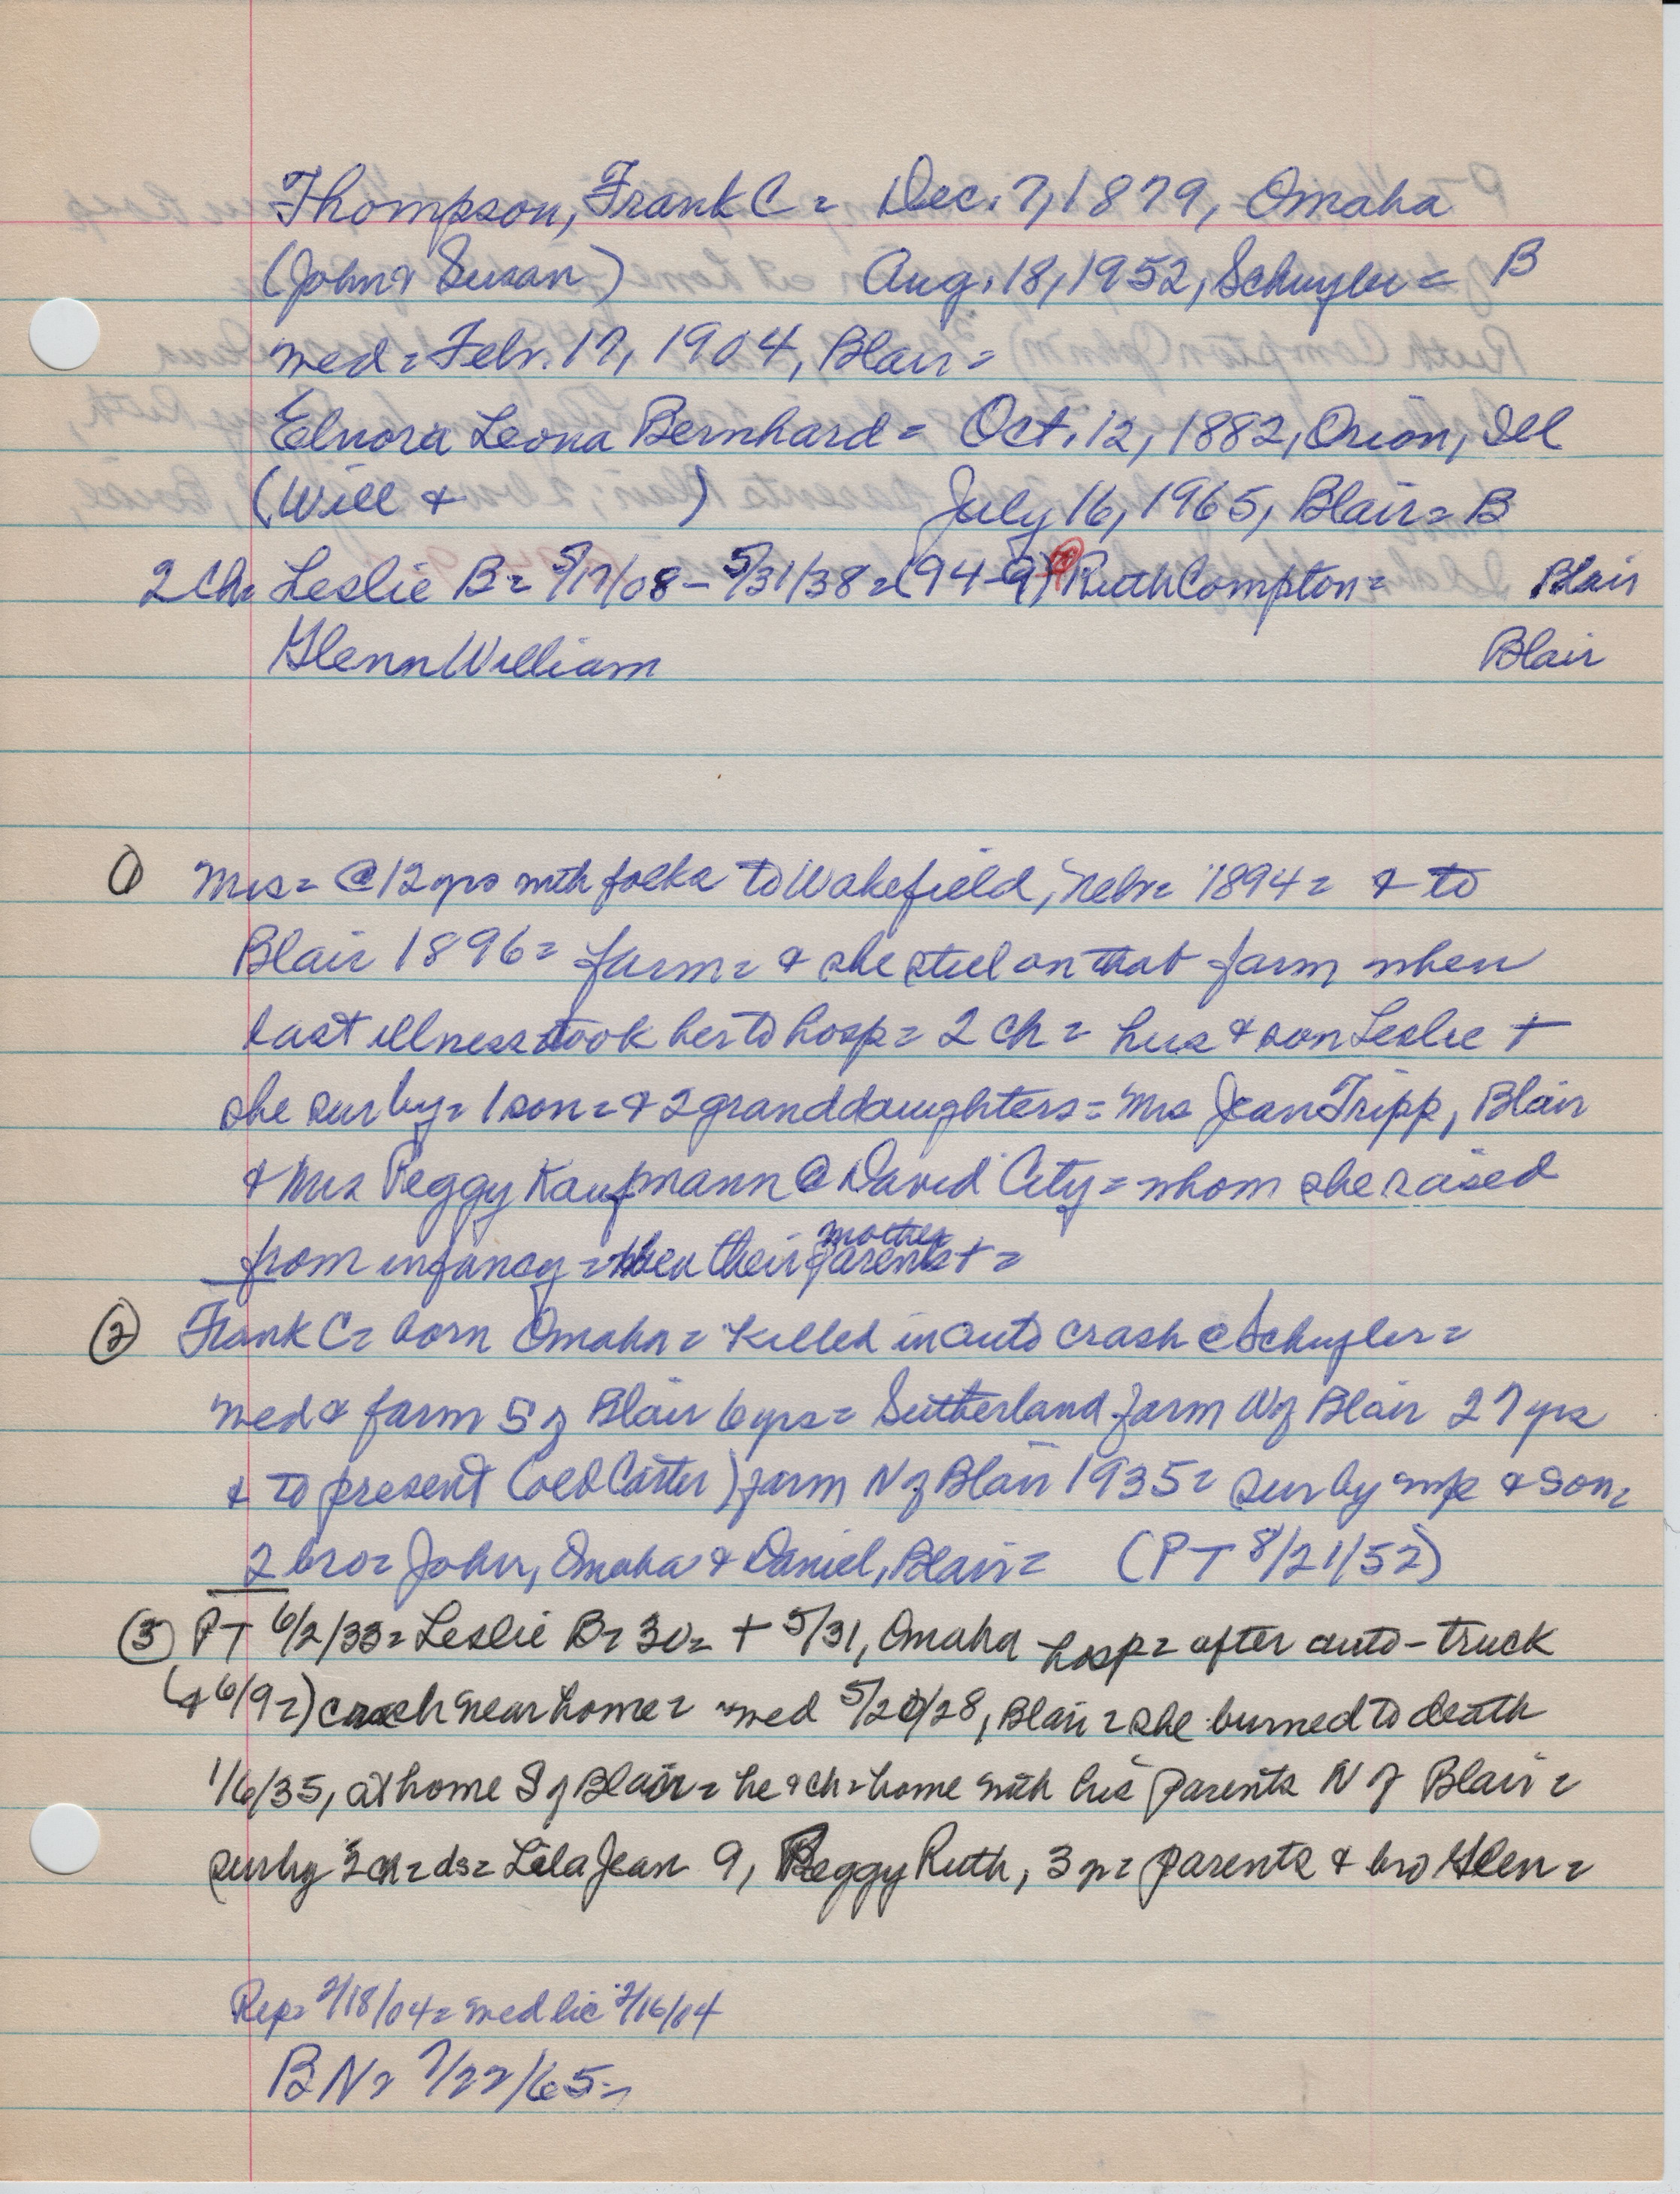 Thompson, Frank C = Dec. 7, 1879, Omaha
(John & Susan) Aug. 18, 1952, Schuyler = B
med = Febr. 17, 1904, Blair =
Elnora Leona Bernhard = Oct. 12, 1882, Orion, Ill
(Will & ) July 16, 1965, Blair = B
2 Ch = Leslie B = 5/17/08 - 5/31/38 = (94-9) Ruth Compton = Blair
Glenn William Blair
① Mrs = @ 12 yrs with folks to Wakefield, Nebr = 1894 = & to
Blair 1896 = farm = & she still on that farm when
last illness took her to hosp = 2 ch = hus & son Leslie +
she sur by = 1 son = & 2 granddaughters = Mrs Jean Tripp, Blair
& Mrs Peggy Kaufmann @ David City = whom she raised
from infancy = when their mother + =
② Frank C = born Omaha = Killed in auto crash @ Schuyler =
med & farm S of Blair 6 yrs = Sutherland farm N of Blair 27 yrs
& to present (old Carter) farm N of Blair 1935 = sur by wife & son =
2 bro = John, Omaha & Daniel, Blair = (PT 8/21/52)
③ PT 6/2/38 = Leslie B = 30 = + 5/31, Omaha hosp = after auto-truck
(& 6/9 =) crash near home = med 5/20/28, Blair = she burned to death
1/6/35, at home S of Blair = he & ch = home with his parents N of Blair =
sur by 2 ch = ds = Lila Jean 9, Peggy Ruth, 3 yr = parents & bro Glen =
Rep = 2/18/04 = med lic 2/16/04
BN = 7/22/65 =